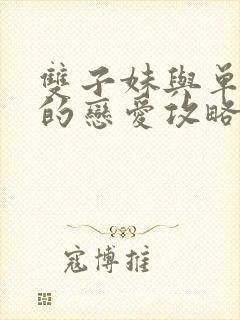 雙子妹與單
的戀愛攻略
寇博推